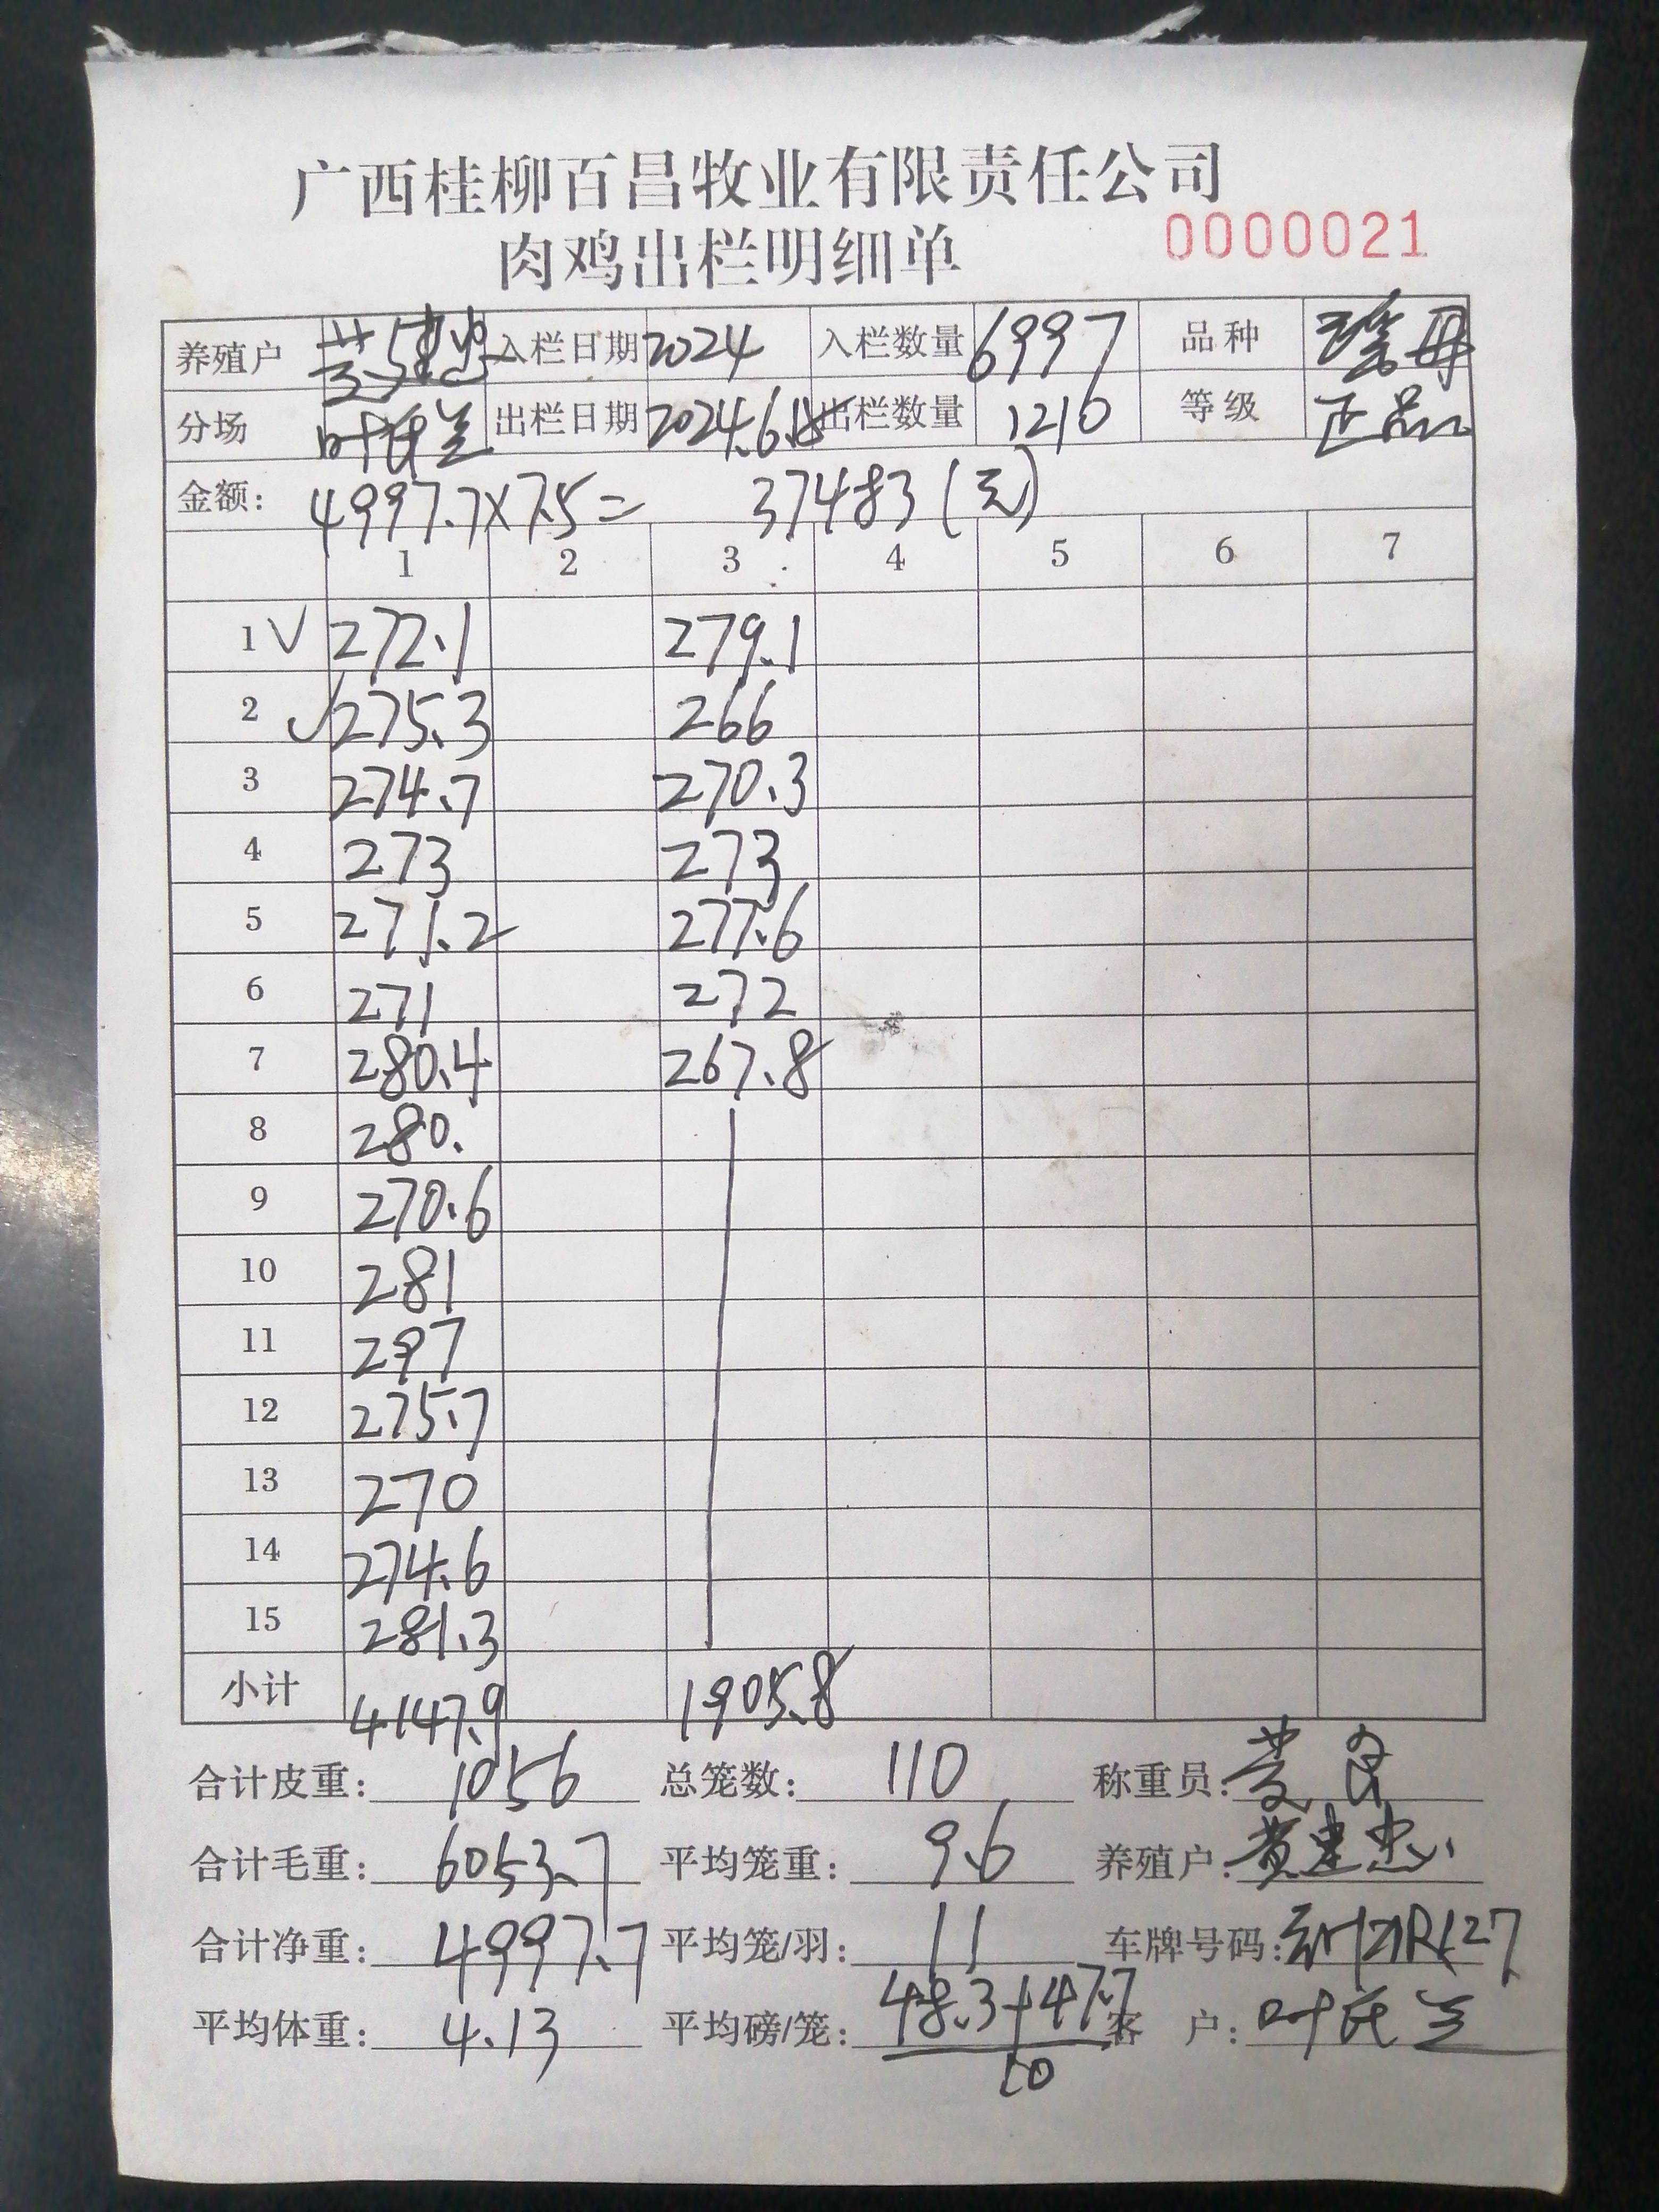 广西桂柳百昌牧业有限责任公司
肉鸡出栏明细单 0000021
养殖户 黄建忠 入栏日期 2024 入栏数量 6997 品种 瑶母
分场 叶氏兰 出栏日期 2024.6.18 出栏数量 1210 等级 正品
金额: 4997.7×7.5= 37483(元)
1 2 3 4 5 6 7
1 ✓ 272.1 279.1
2 ✓ 275.3 266
3 274.7 270.3
4 273 273
5 271.2 277.6
6 271 272
7 280.4 267.8
8 280.
9 270.6
10 281
11 297
12 275.7
13 270
14 274.6
15 281.3
小计 4147.9 1905.8
合计皮重: 1056 总笼数: 110 称重员:
合计毛重: 6053.7 平均笼重: 9.6 养殖户: 黄建忠
合计净重: 4997.7 平均笼/羽: 11 车牌号码:
平均体重: 4.13 平均磅/笼: 48.3+47.7 客 户: 叶氏兰
10